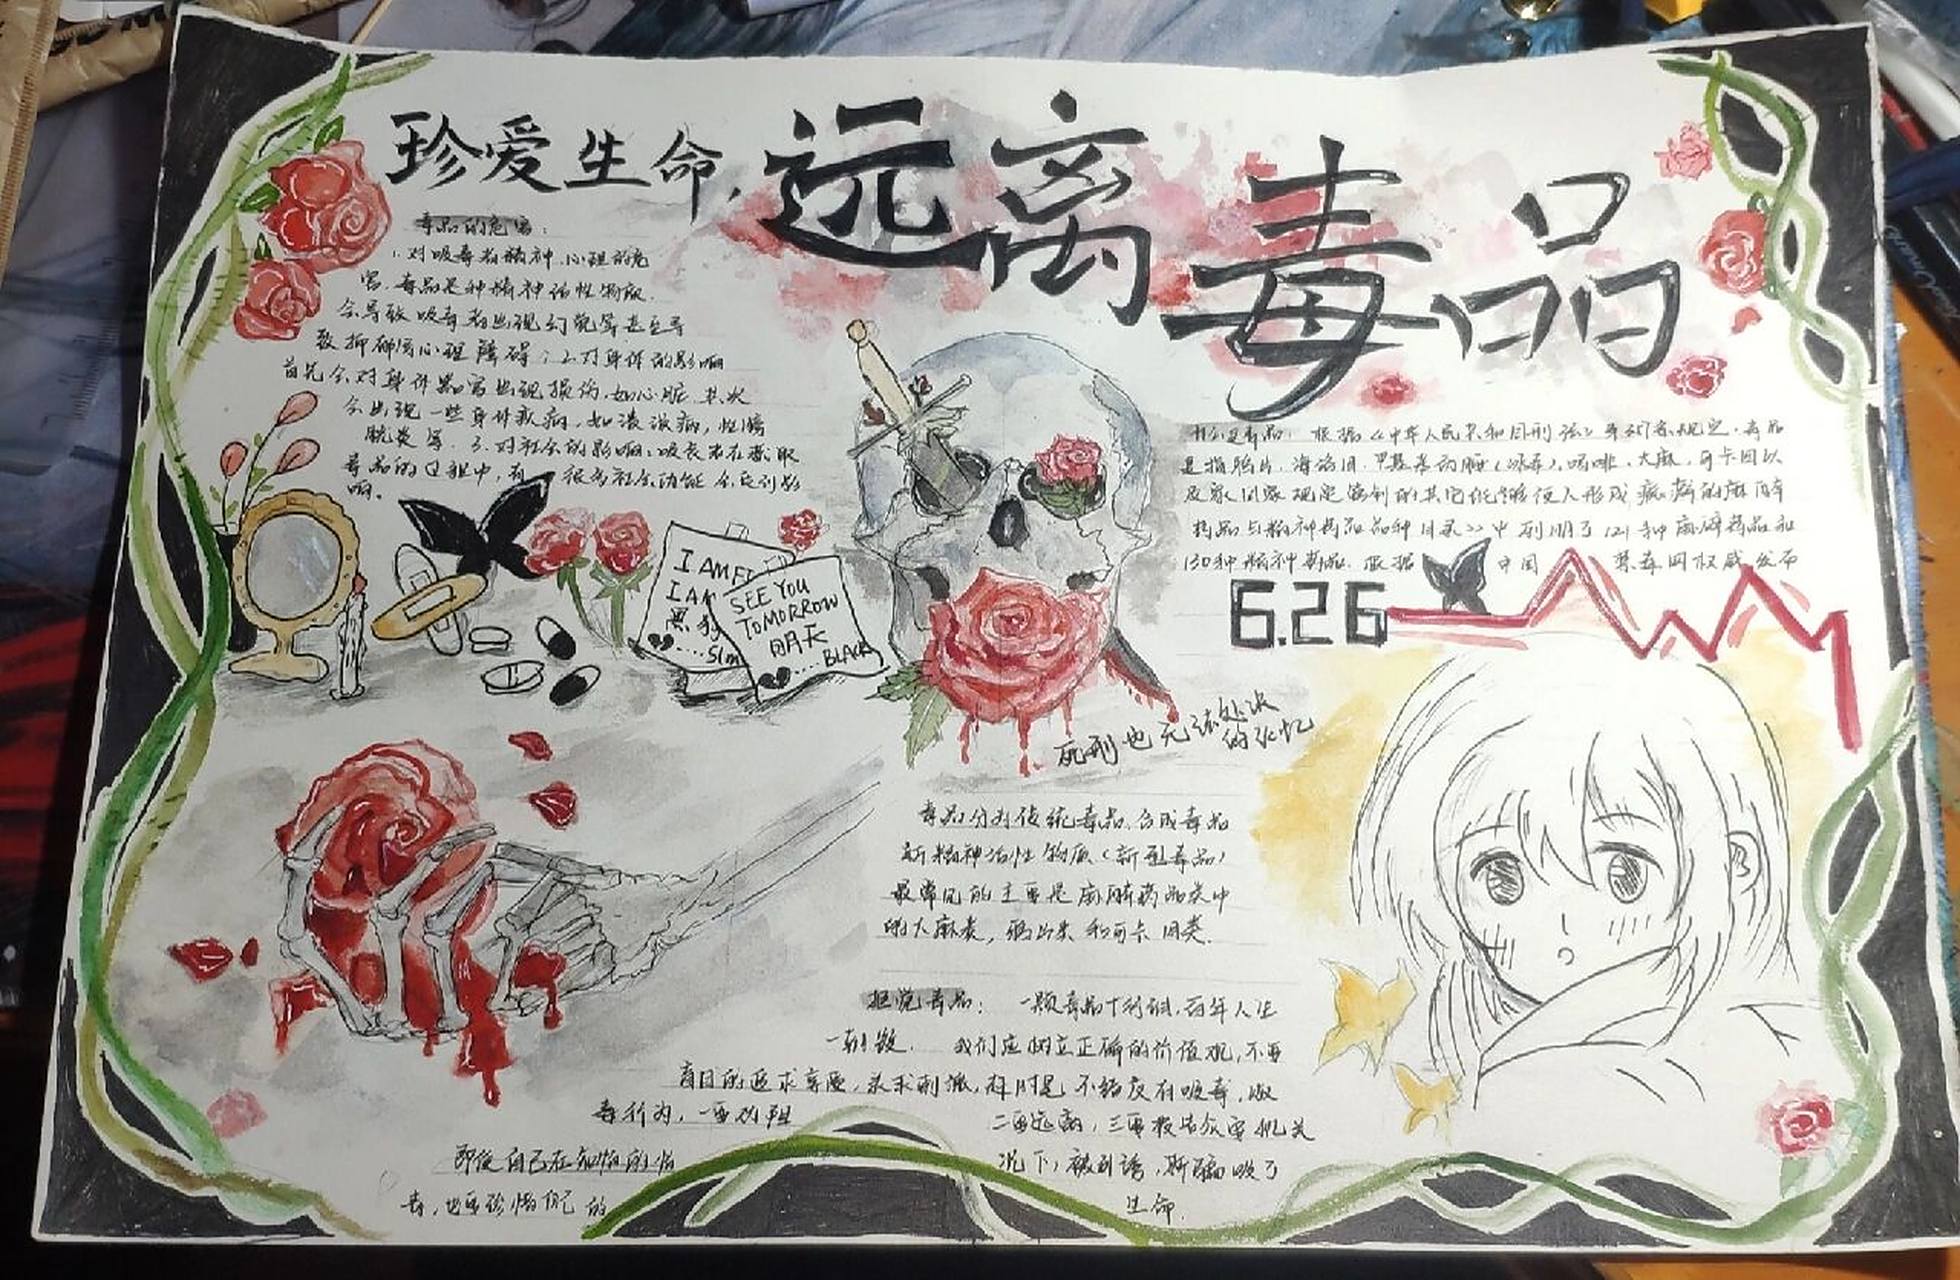 珍爱生命,远离毒品
毒品的危害:
1.对吸毒者精神.心理的危
害.毒品是种精神活性物质.
会导致吸毒者出现幻觉等甚至导
致抑郁等心理障碍;2.对身体的影响
首先会对身体器官出现损伤,如心脏.其次
会出现一些身体疾病,如
胱炎等.3.对社会的影响:吸毒者在戒取
毒品的过程中,有很多社会功能会受到影
响.
I AM
I AM
黑狗
SEE YOU
TOMORROW
明天
....BLACK
什么是毒品:根据《中华人民共和国刑法》第357条规定,毒品
是指鸦片,海洛因.甲基苯丙胺(冰毒),吗啡.大麻,可卡因以
及家国家规定管制的其它能够使人形成瘾癖的麻醉
药品与精神药品品种目录>>中列明了121种麻醉药品和
130种精神药品.根据中国禁毒网权威发布
6.26
死刑也无法处决
的记忆
毒品分为传统毒品.合成毒品
新精神活性物质(新型毒品)
最常见的主要是麻醉药品类中
的大麻类,鸦片类和可卡因类.
拒绝毒品:一颗毒品十利钢,百年人生
一朝毁.我们应树立正确的价值观,不要
盲目的追求享受,寻求刺激,赶时髦不结交有吸毒,贩
毒行为,一要劝阻二要远离,三要报告公安机关
即使自己在不知情的情况下,被引诱,欺骗吸了
毒,也要珍惜自己的生命.